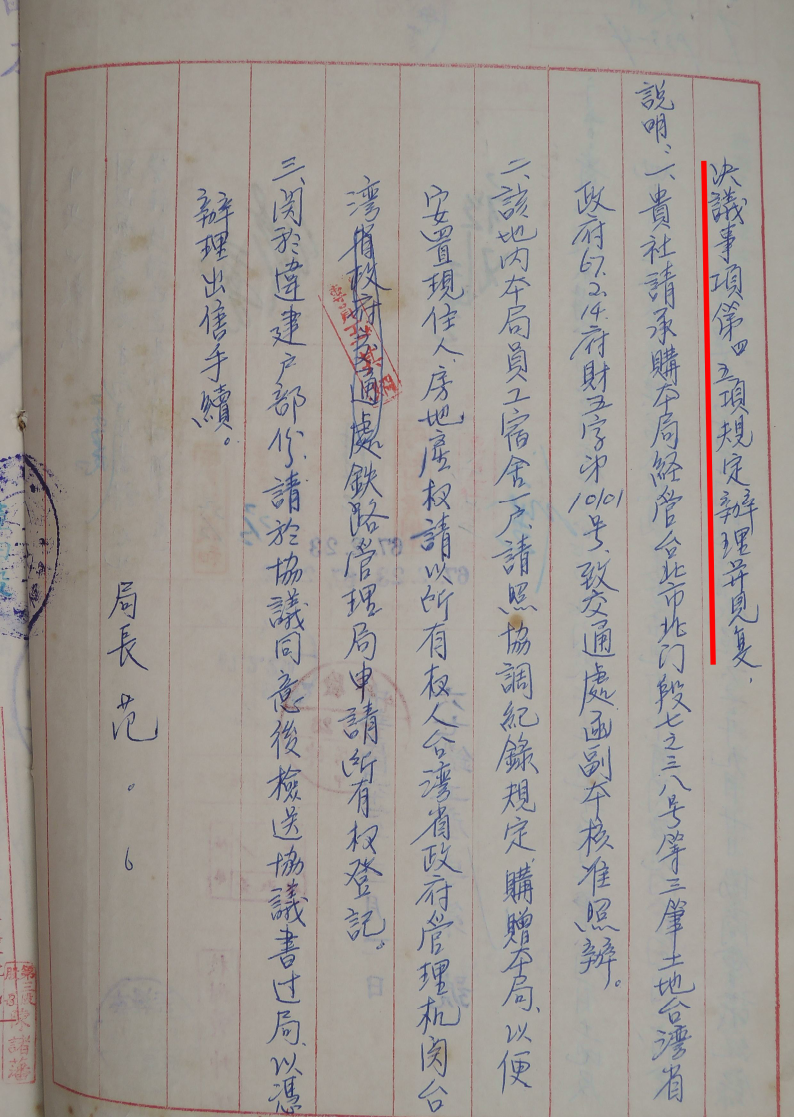 決議事項第四五項規定辦理并見复，
說明：一、貴社請承購本局経管台北市北门段七之三八号等三筆土地台湾省
政府67.2.14.府財五字第10101号致交通處函副本核准照辦。
二、該地內本局員工宿舍一户請照協調紀錄規定購贈本局、以便
安置現住人、房地產权請以所有权人台湾省政府管理机関台
湾省政府交通處鉄路管理局申請所有权登記。
三、関於違建户部份、請於協議同意後檢送協議書过局、以憑
辦理出售手續。
局長 范。
67.2.23